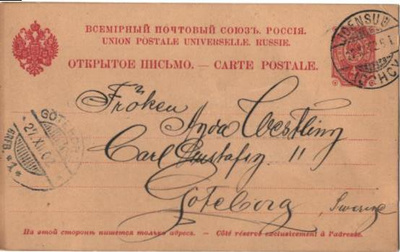 ВСЕМІРНЫЙ ПОЧТОВЫЙ СОЮЗЪ. РОССІЯ.
UNION POSTALE UNIVERSELLE. RUSSIE.
ОТКРЫТОЕ ПИСЬМО. — CARTE POSTALE.
JOENSUU
Fröken
Anna Westling
Carl Gustafsg 11
Göteborg
На этой сторонѣ пишется только адресъ. — Côté réservé exclusivement à l'adresse.